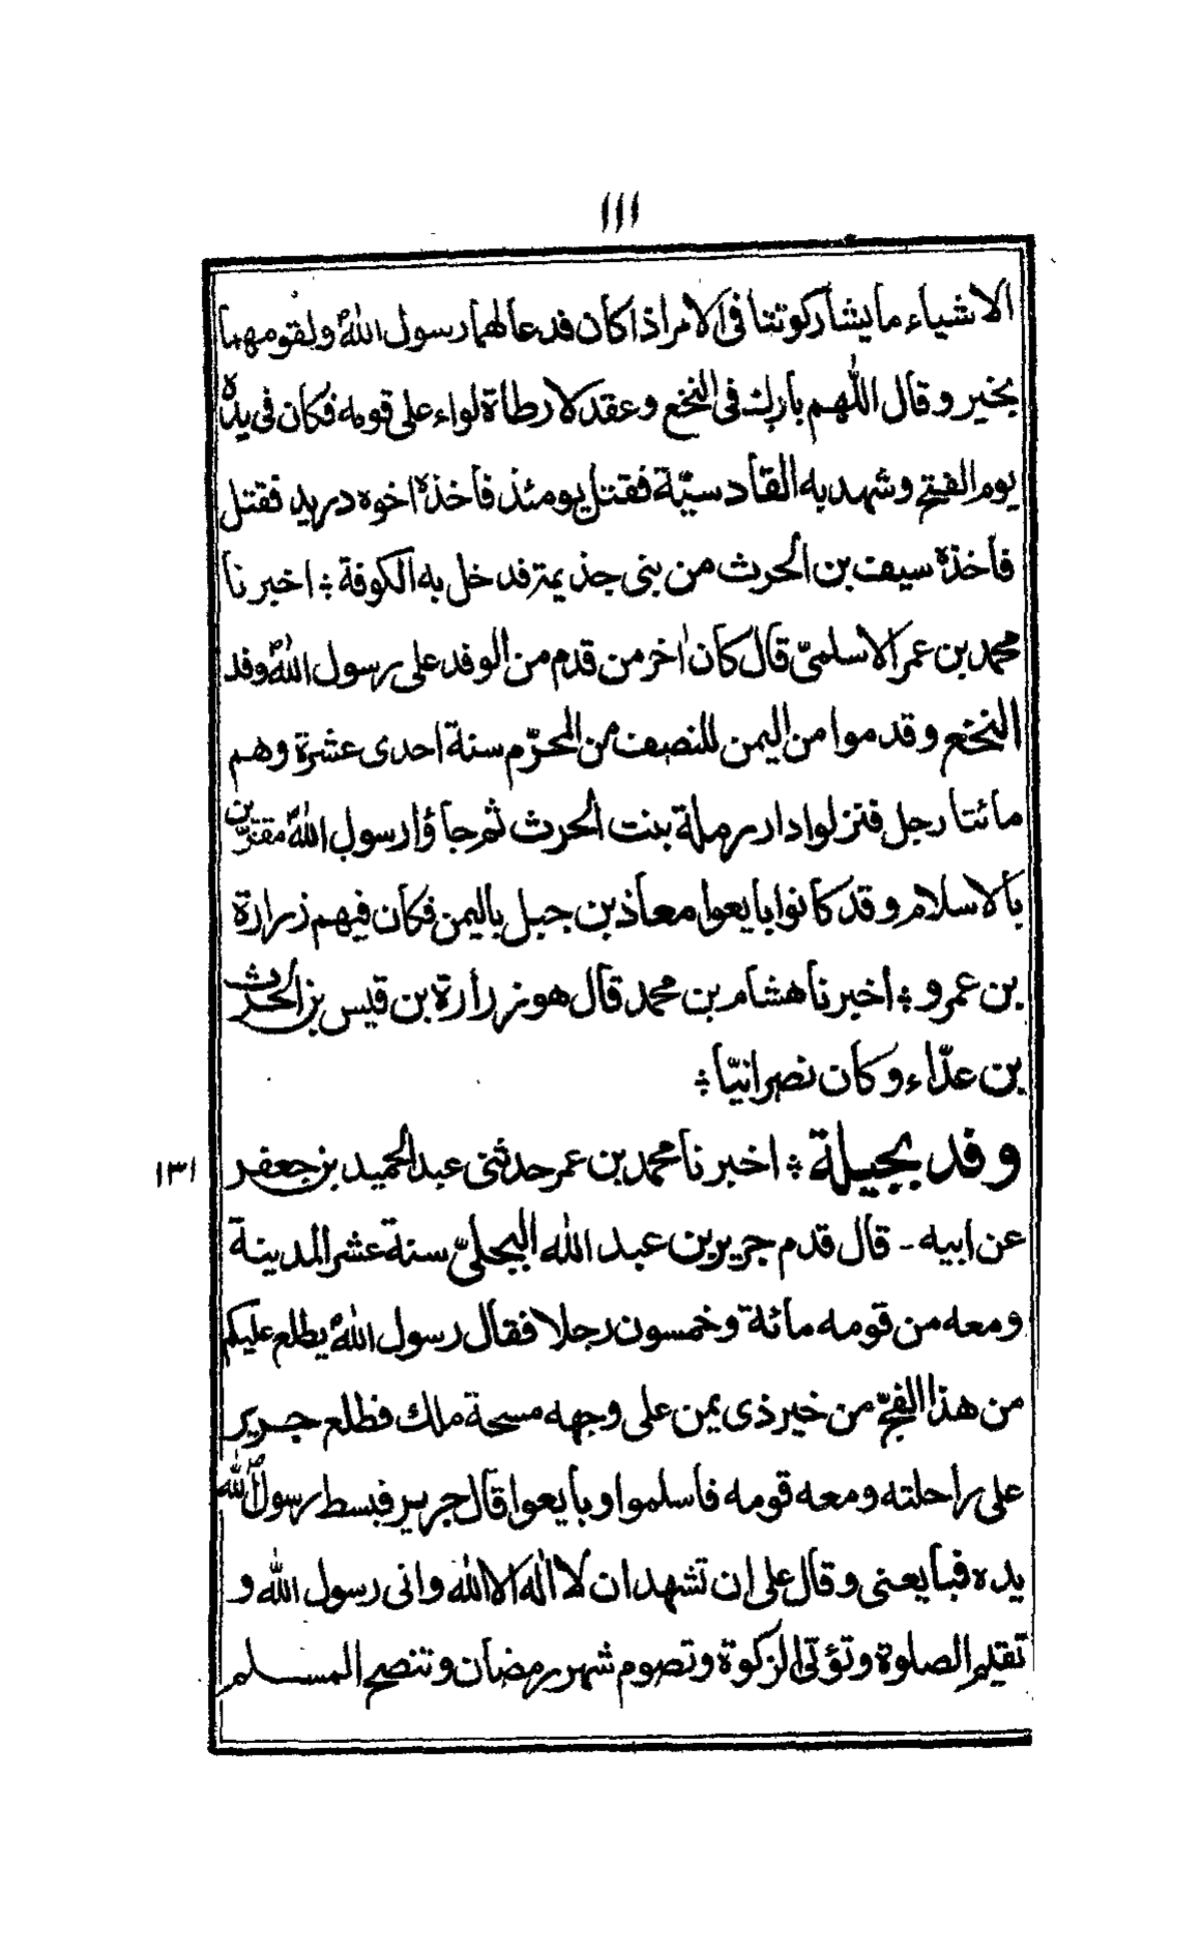 ١١١
الاشياء ما يشاركوتنا فى الامر اذا كان فدعا لهما رسول اللهؐ ولقومهما
بخير وقال اللهم بارك فى النخع وعقد لارطاة لواء على قومه فكان فى يده
يوم الفتح وشهد به القادسيّة فقتل يومئذ فاخذه اخوه دريد فقتل
فاخذه سيف بن الحرث من بنى جذيمة فدخل به الكوفة ؛ اخبرنا
محمد بن عمر الاسلمىّ قال كان اٰخر من قدم من الوفد على رسول اللهؐ وفد
النخع وقدموا من اليمن للنصف من المحرّم سنة احدى عشرة وهم
مائتا رجل فتزلوا دار رملة بنت الحرث ثم جاؤا رسول اللهؐ مقرّين
بالاسلام وقد كانوا بايعوا معاذ بن جبل باليمن فكان فيهم زرارة
بن عمرو ؛ اخبرنا هشام بن محمد قال هو زرارة بن قيس بن الحرث
بن عدّاء وكان نصرانيّا ؛
وفد بجيلة ؛ اخبرنا محمد بن عمر حدثنى عبد الحميد بن جعفر
١٣١
عن ابيه - قال قدم جرير بن عبد الله البجلىّ سنة عشر المدينة
ومعه من قومه مائة وخمسون رجلا فقال رسول اللهؐ يطلع عليكم
من هذا الفجّ من خير ذى يمن على وجهه مسحة ملك فطلع جرير
على راحلته ومعه قومه فاسلموا وبايعوا قال جرير فبسط رسول اللهؐ
يده فبايعنى وقال على ان تشهد ان لا اله الا الله وانى رسول الله و
تقيم الصلوة وتؤتى الزكوة وتصوم شهر رمضان وتنصح المسلم